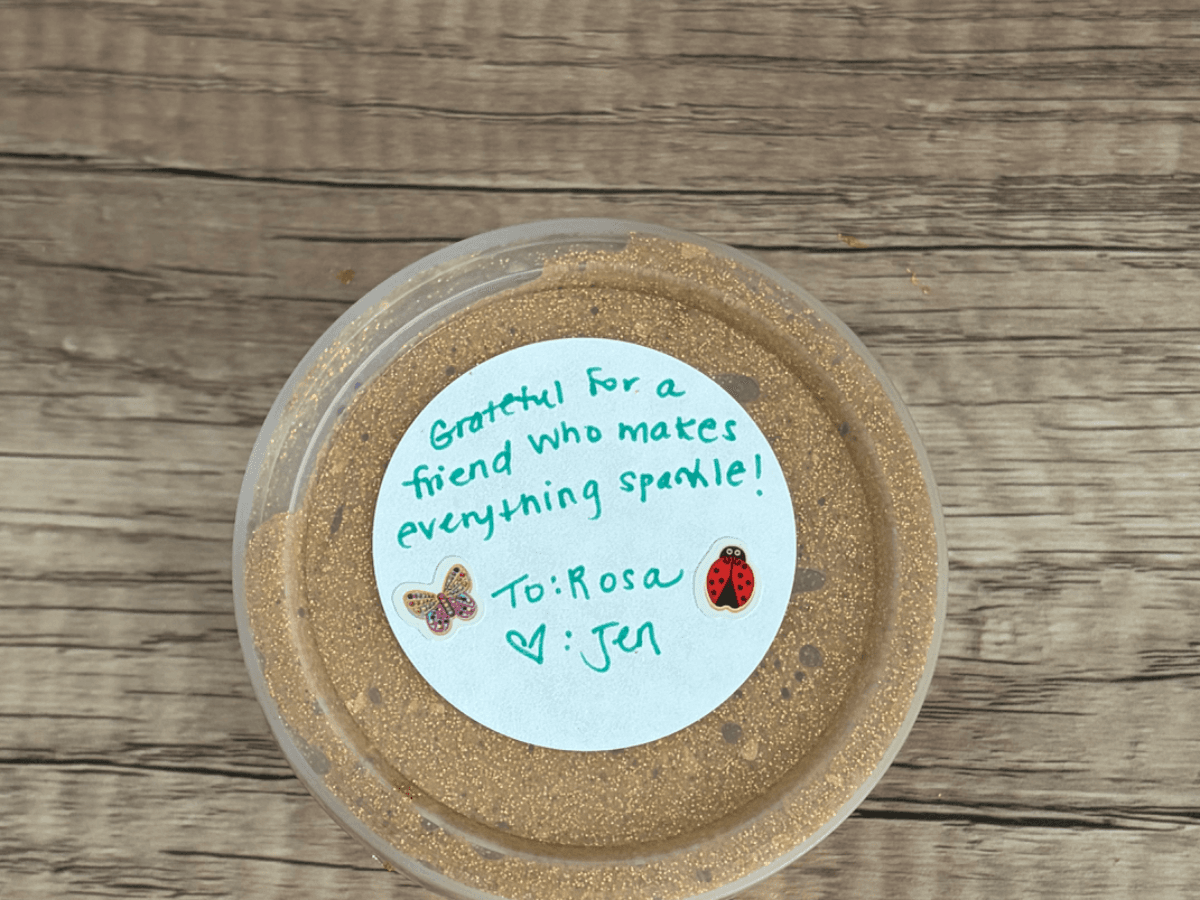 Grateful for a
friend who makes
everything sparkle!
To: Rosa
♡: Jen